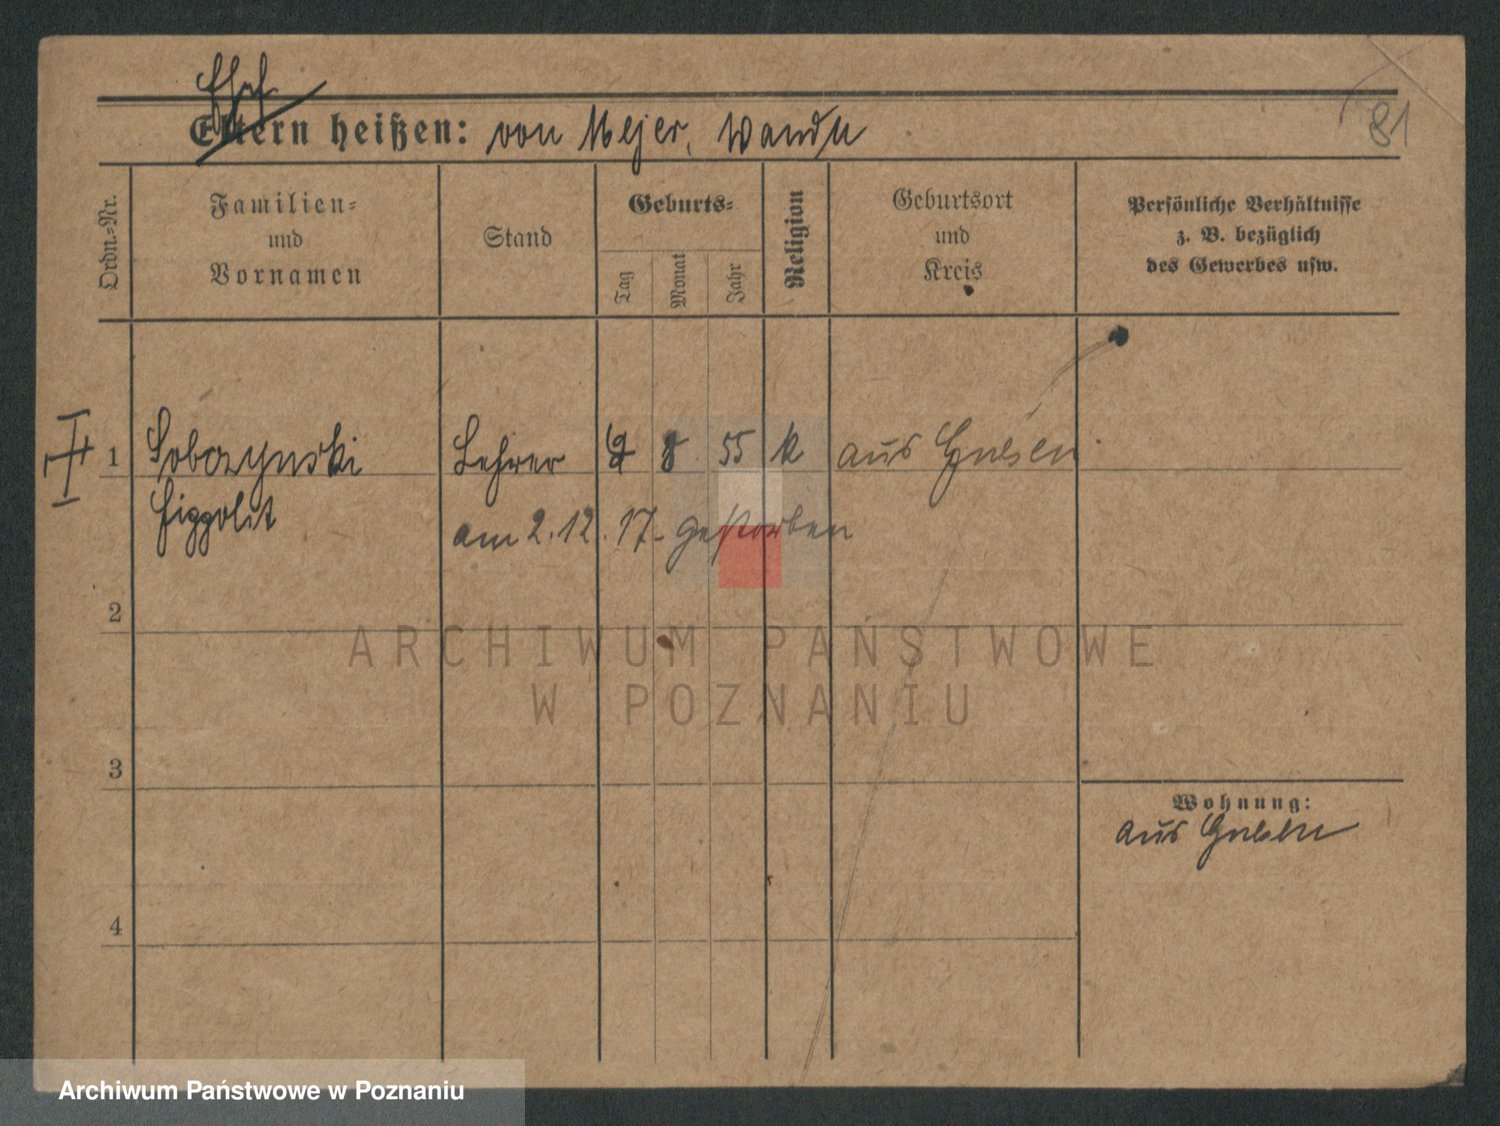 Ehef
Eltern heißen: von Mejer, Wanda
81
Ordn.-Nr.
Familien-
und
Vornamen
Stand
Geburts-
Tag
Monat
Jahr
Religion
Geburtsort
und
Kreis
Persönliche Verhältnisse
z. B. bezüglich
des Gewerbes usw.
1 Sobczynski Lehrer 8 55 k aus Gnesen
Hippolit am 2.12.17 - gestorben
2
ARCHIWUM PAŃSTWOWE
W POZNANIU
3
Wohnung:
aus Gnesen
4
Archiwum Państwowe w Poznaniu